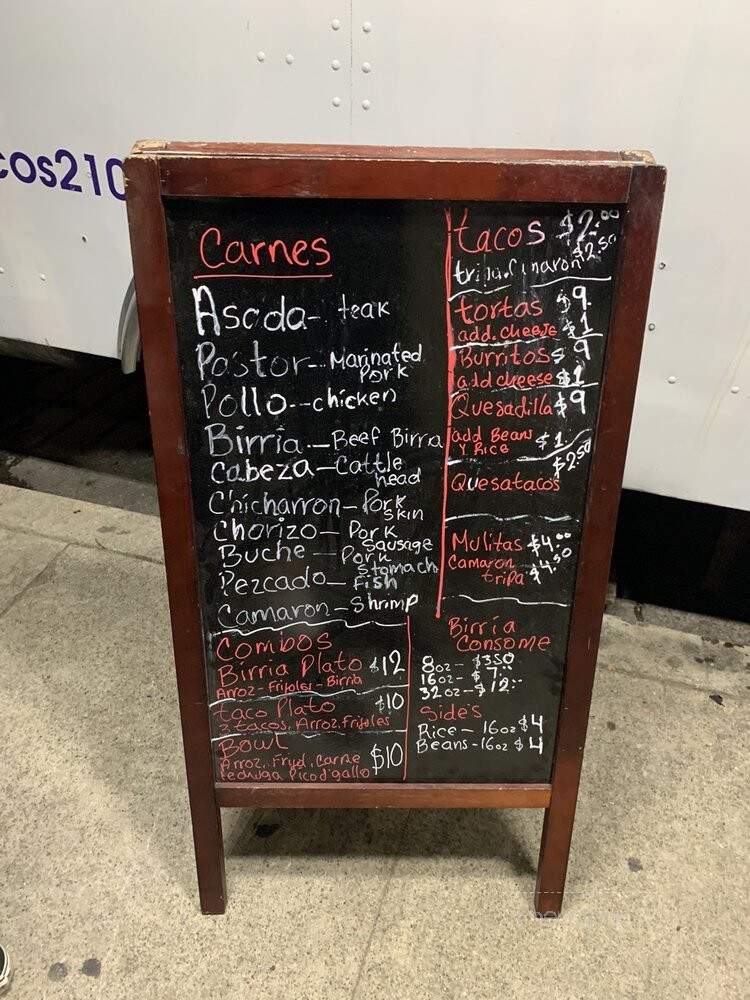 cos210
Carnes
Asada- teak
Pastor-- Marinated
Pork
Pollo--chicken
Birria-Beef Birria
Cabeza-Cattle
head
Chicharron-Pork
Skin
Chorizo-Pork
Sausage
Buche-Pork
Stomach
Pezcado-Fish
Camaron-Shrimp
Combos
Birria Plato $12
Arroz-Frijoles-Birria
taco Plato $10
Arroz. Frijoles
Bowl $10
Arroz. Carne
Pico d'gallo
tacos $2.00
$2.50
tortas $9
add. cheese $1
Burritos $9
add cheese $1
Quesadilla $9
add Beans $1
Y Rice
$2.50
Quesatacos
Mulitas $4.00
Camaron $4.50
tripa
Birria
Consome
8oz- $350
16oz- $7
32oz-$12
Side's
Rice- 16oz $4
Beans-16oz $4